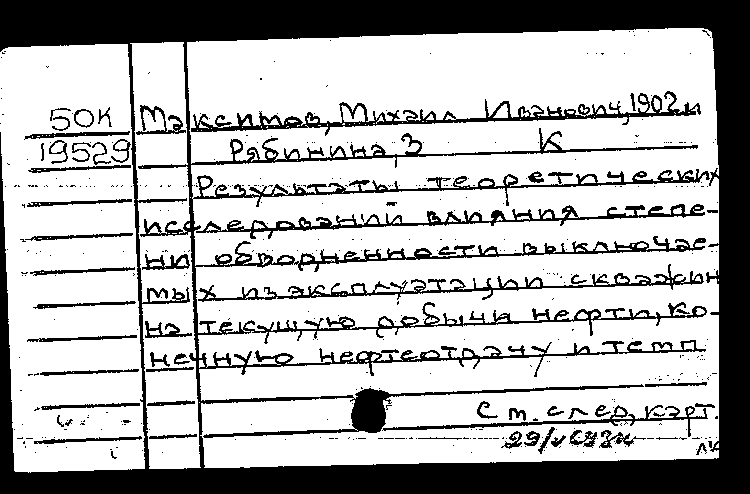 50К Максимов, Михаил Иванович, 1902 и
19529 Рябинина, З К
Результаты теоретических
исследований влияния степе-
ни обводненности выключае-
мых из эксплуатации скважин
на текущую добычу нефти, ко-
нечную нефтеотдачу и темп
См. след. карт.